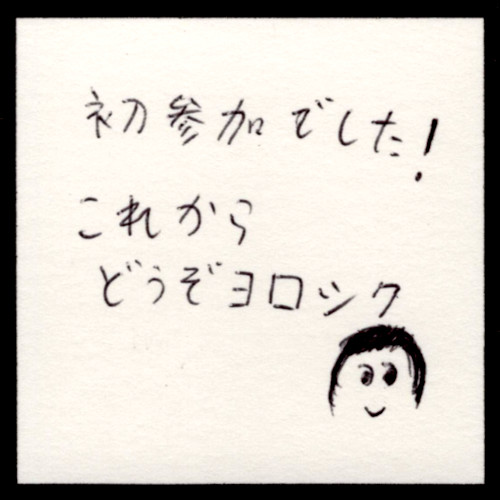 初参加でした!
これから
どうぞヨロシク